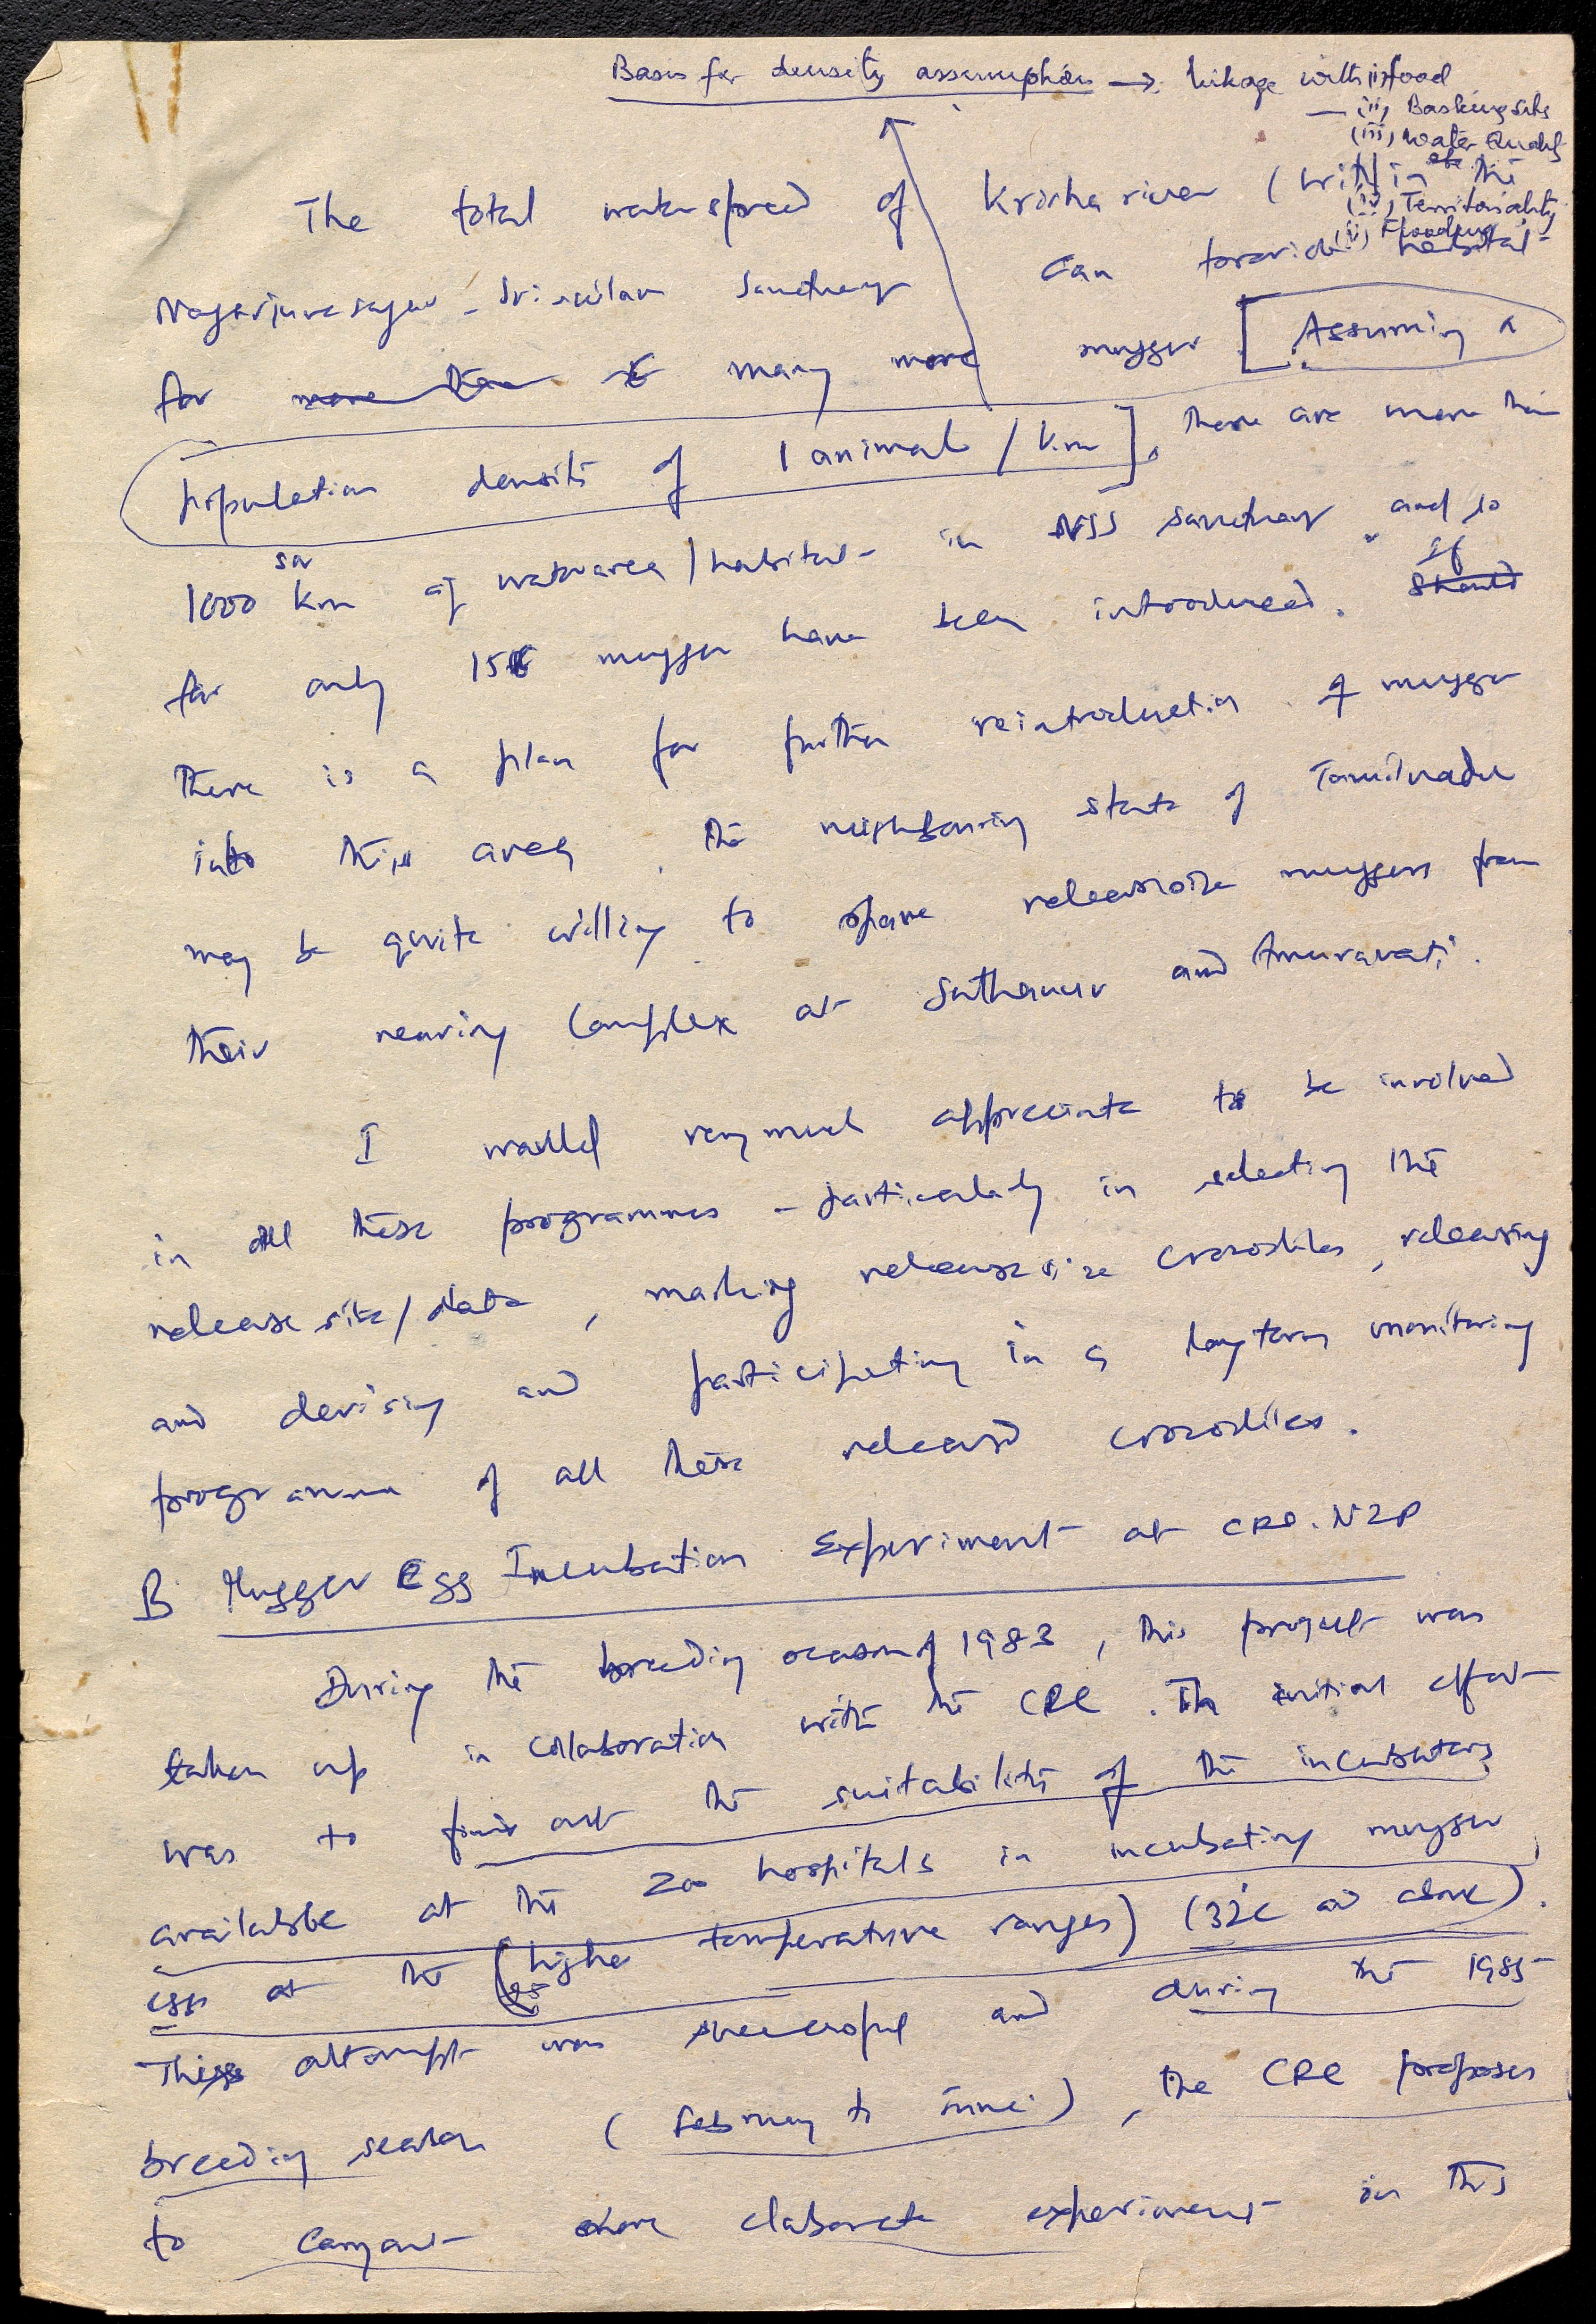 Basis for density assumption → linkage with (i) food
— (ii) Basking site
(iii) Water Quality
etc.
(iv) Territoriality
(v) Flooding
The total waterspread of Krishna river (within the
Nagarjunasagar - Srisailam Sanctuary can provide habitat
for more than many more mugger [Assuming a
population density of 1 animal / km], there are more than
1000 sq km of waterarea / habitat in NSS sanctuary and so
far only 15 mugger have been introduced. Should If
there is a plan for further reintroduction of mugger
into this area, the neighbouring state of Tamilnadu
may be quite willing to spare releasable muggers from
their rearing complex at Sathanur and Amaravati.
I would very much appreciate to be involved
in all these programmes - particularly in selecting the
release site / date, marking release size crocodiles, releasing
and devising and participating in a long term monitoring
programme of all these released crocodiles.
B Mugger Egg Incubation Experiment at CRC. NZP
During the breeding season of 1983, this project was
taken up in collaboration with the CRC. The initial effort
was to find out the suitability of the incubators
available at the Zoo hospitals in incubating mugger
eggs at the (higher temperature ranges) (32°C and above).
This attempt was successful and during the 1985
breeding season (February to June), the CRC proposes
to carryout more elaborate experiment in this